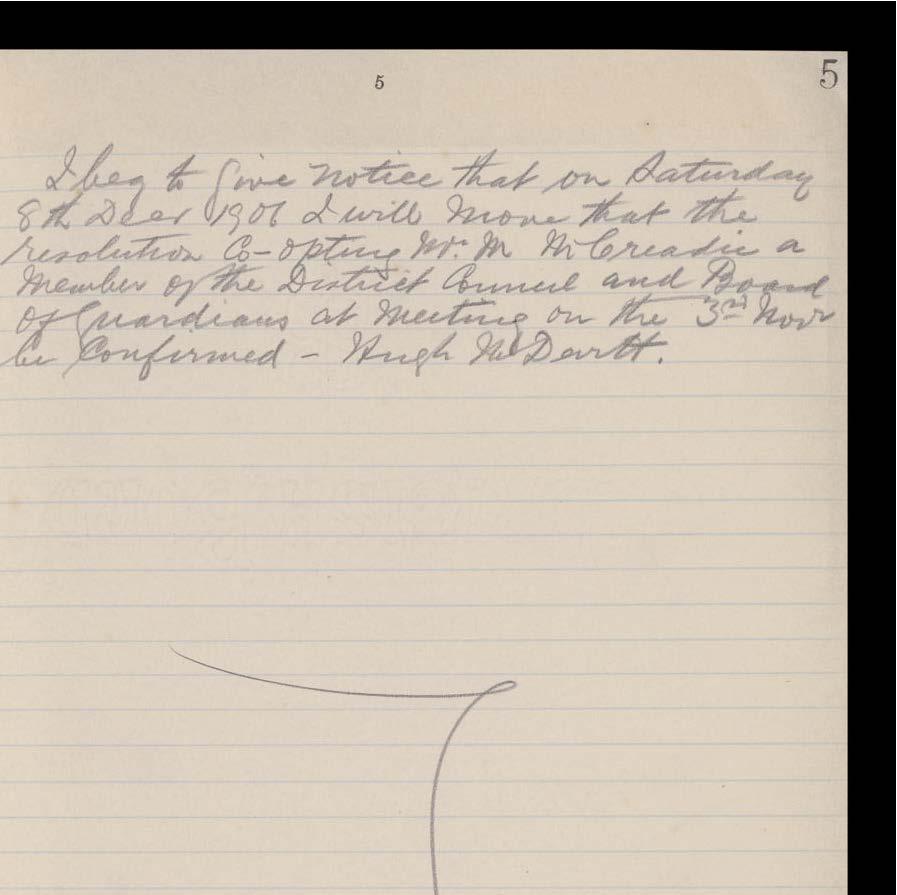 5
5
I beg to give notice that on Saturday
8th Decr 1906 I will move that the
resolution Co-opting Mr. M McCreadie a
Member of the District Council and Board
of Guardians at meeting on the 3rd Novr
be Confirmed - Hugh McDevitt.